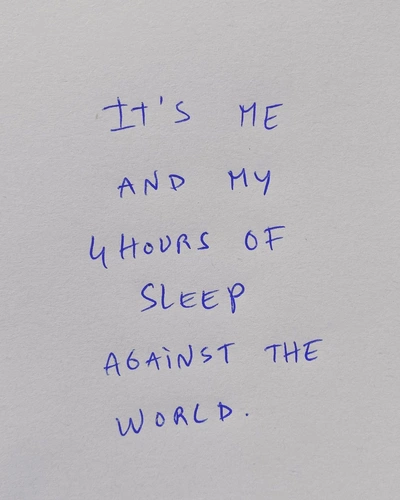 IT'S ME
AND MY
4 HOURS OF
SLEEP
AGAINST THE
WORLD.